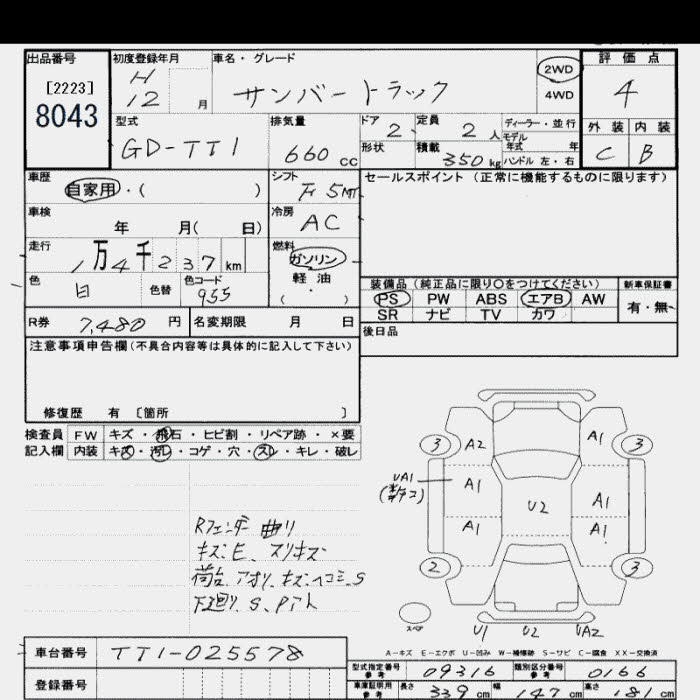 出品番号
[2223]
8043
初度登録年月
H
12 月
車名・グレード
サンバートラック
2WD
4WD
評価点
4
外装 内装
C B
型式
GD-TT1
排気量
660 cc
ドア
2
定員
2 人
形状
積載
350 kg
ディーラー・並行
モデル
年式 年
ハンドル 左・右
車歴
自家用・( )
シフト
Fr 5MT
車検
年 月( 日)
冷房
AC
走行
1万4千237 km
燃料
ガソリン
軽油
( ・ )
色
白
色替
色コード
955
R券 7,480 円
名変期限 月 日
セールスポイント(正常に機能するものに限ります)
装備品(純正品に限り○をつけてください)
PS PW ABS エアB AW
SR ナビ TV カワ
新車保証書
有・無
後日品
注意事項申告欄(不具合内容等は具体的に記入して下さい)
修復歴 有 〔箇所 〕
検査員 FW キズ・飛石・ヒビ割・リペア跡・×要
記入欄 内装 キズ・汚レ・コゲ・穴・スレ・キレ・破レ
Rフェンダー曲り
キズ.E、スリキズ
荷台.アオリ.キズ.ヘコミ.S
下廻り.S.Pアト
3 A2 A1 3
UA1
A1 U2 A1
A1 A1
2 3
スペア
U1 U2 UA2
A-キズ E-エクボ U-凹み W-補修跡 S-サビ C-腐食 XX-交換済
車台番号 TT1-025578
登録番号
型式指定番号
参考
09316
類別区分番号
参考
0166
車庫証明用
参考
長さ 339 cm 幅 147 cm 高さ 181 cm